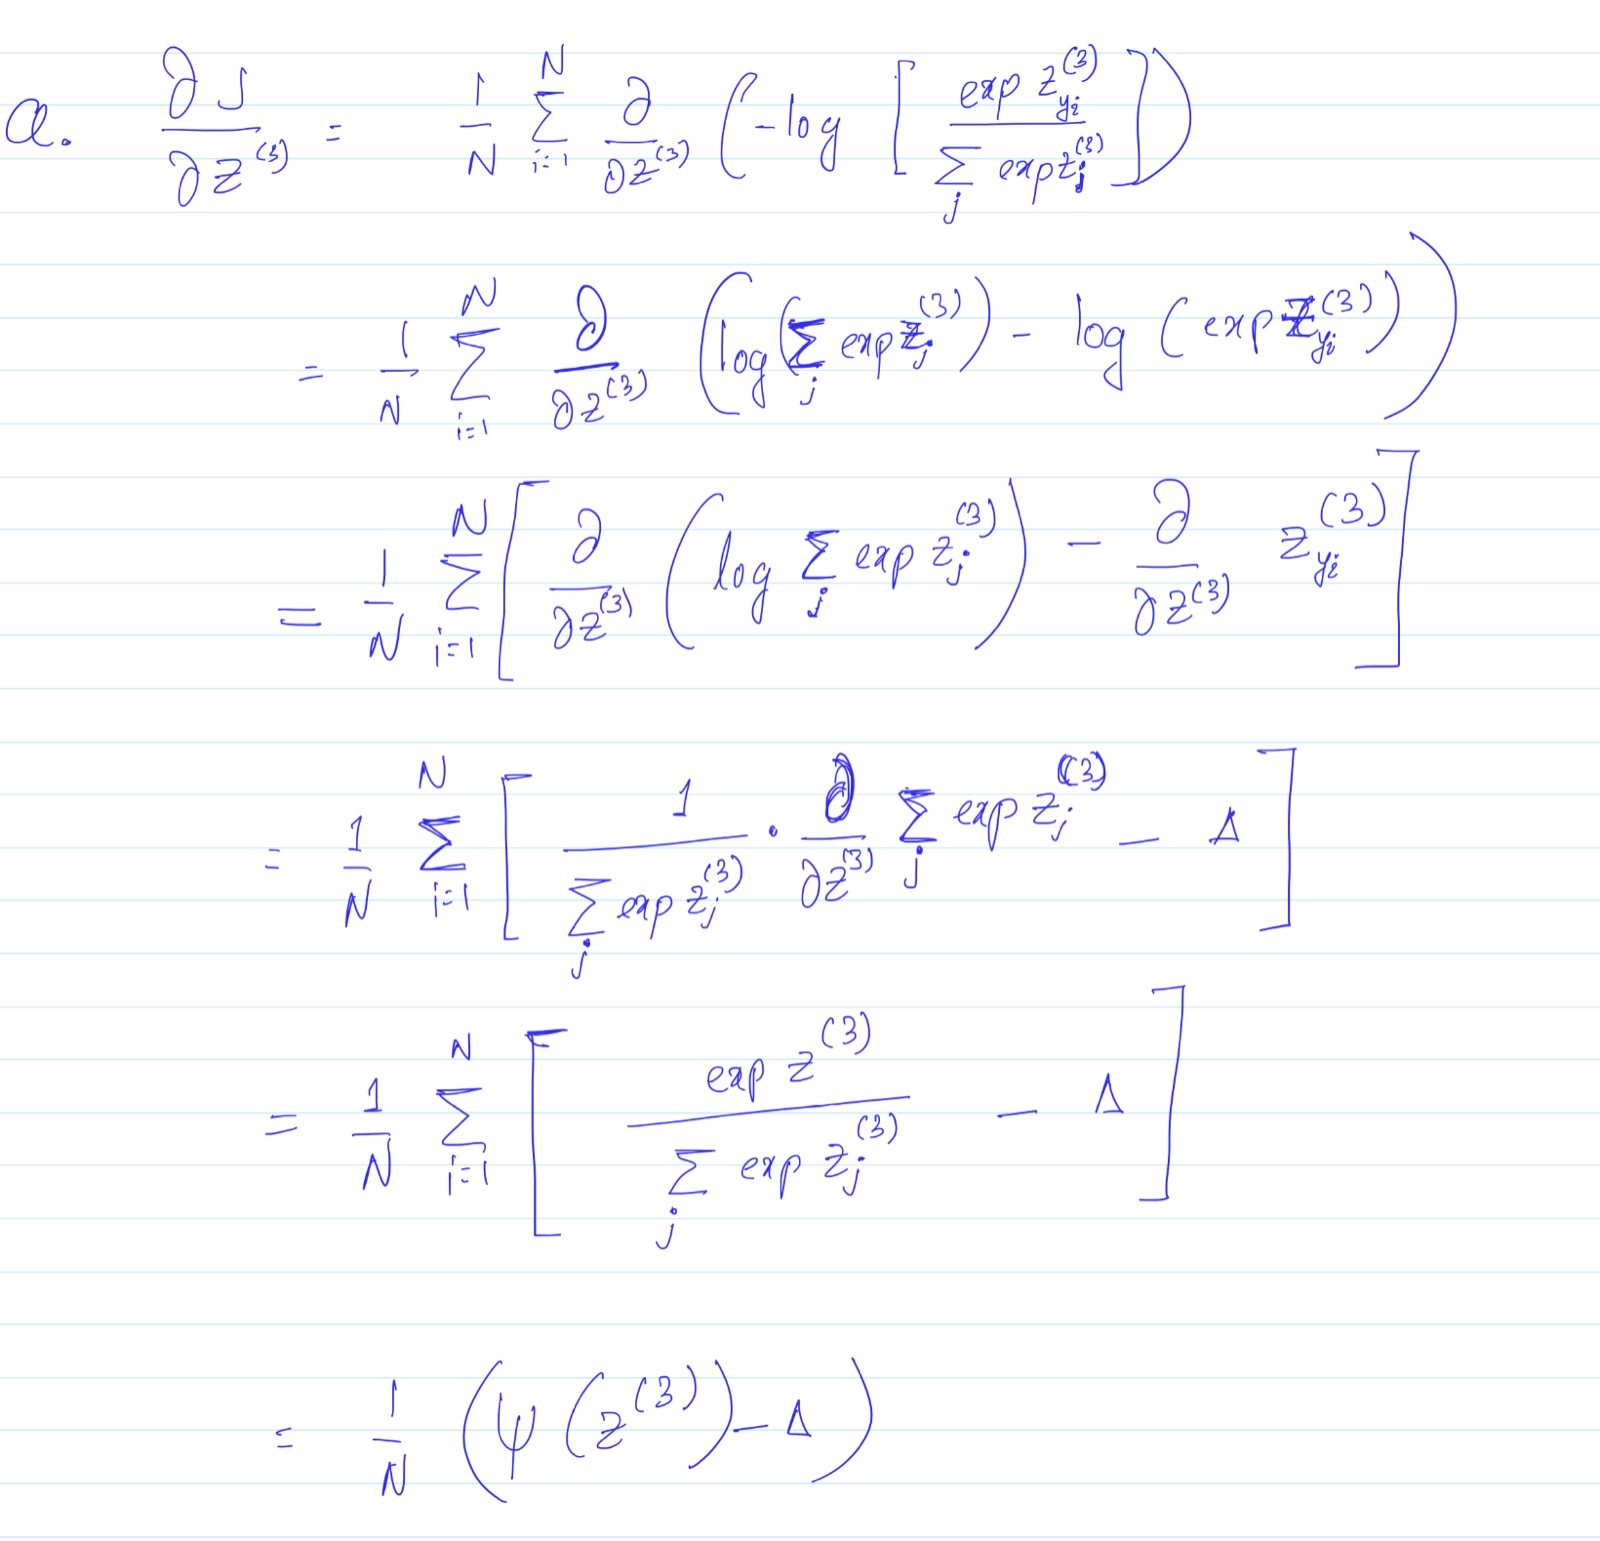 a. ∂J/∂z^(3) = 1/N ∑_{i=1}^{N} ∂/∂z^(3) (-log [exp z_{y_i}^(3) / ∑_j exp z_j^(3)])
= 1/N ∑_{i=1}^{N} ∂/∂z^(3) (log(∑_j exp z_j^(3)) - log(exp z_{y_i}^(3)))
= 1/N ∑_{i=1}^{N} [∂/∂z^(3) (log ∑_j exp z_j^(3)) - ∂/∂z^(3) z_{y_i}^(3)]
= 1/N ∑_{i=1}^{N} [1 / ∑_j exp z_j^(3) · ∂/∂z^(3) ∑_j exp z_j^(3) - Δ]
= 1/N ∑_{i=1}^{N} [exp z^(3) / ∑_j exp z_j^(3) - Δ]
= 1/N (ψ(z^(3)) - Δ)